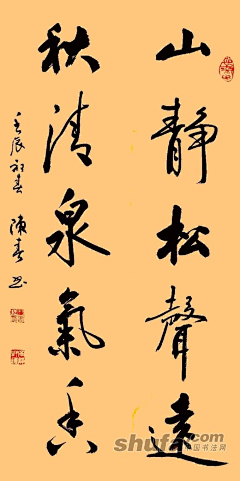 山靜松聲遠
秋清泉氣香
壬辰初春 陳春
shufa.com
国书法网